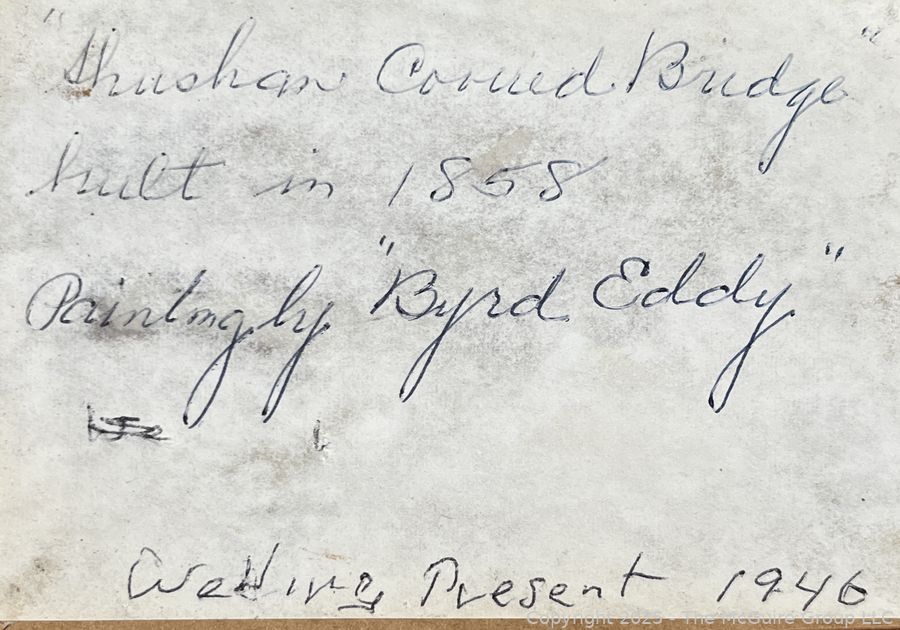 "Shushan Covered Bridge"
built in 1858
Painting by "Byrd Eddy"
Wedding Present 1946
Copyright 2025 - The McGuire Group LLC